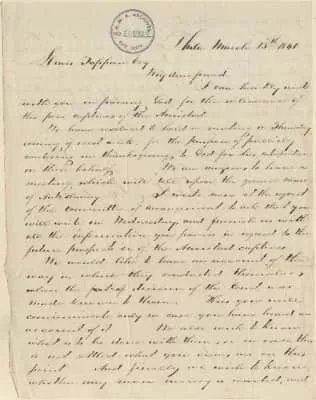 Phila March 13th 1841
Lewis Tappan Esq
My dear friend
I can heartily unite
with you in praising God for the deliverance of
the poor captives of the Amistad
We have resolved to hold a meeting on Thursday
evening of next week, for the purpose of publicly
uniting in thanksgiving to God for his interposition
on their behalf. We are anxious to have a
meeting which will tell upon the general cause
of Anti slavery I write now at the request
of the committee of arrangement to ask that you
will write on Wednesday and furnish us with
all the information you possess in regard to the
future prospects &c of the Amistad captives
We would like to have an account of the
way in which they conducted themselves
when the fact of decision of the Court was
made known to them. This you will
communicate only in case you have heard an
account of it We also wish to know
what is to be done with them, or in case this
is not settled what your views are on this
point And finally we wish to know
whether any more money is wanted, and